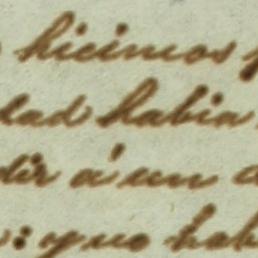 hicimos
dad habia
dir á un
: que hab